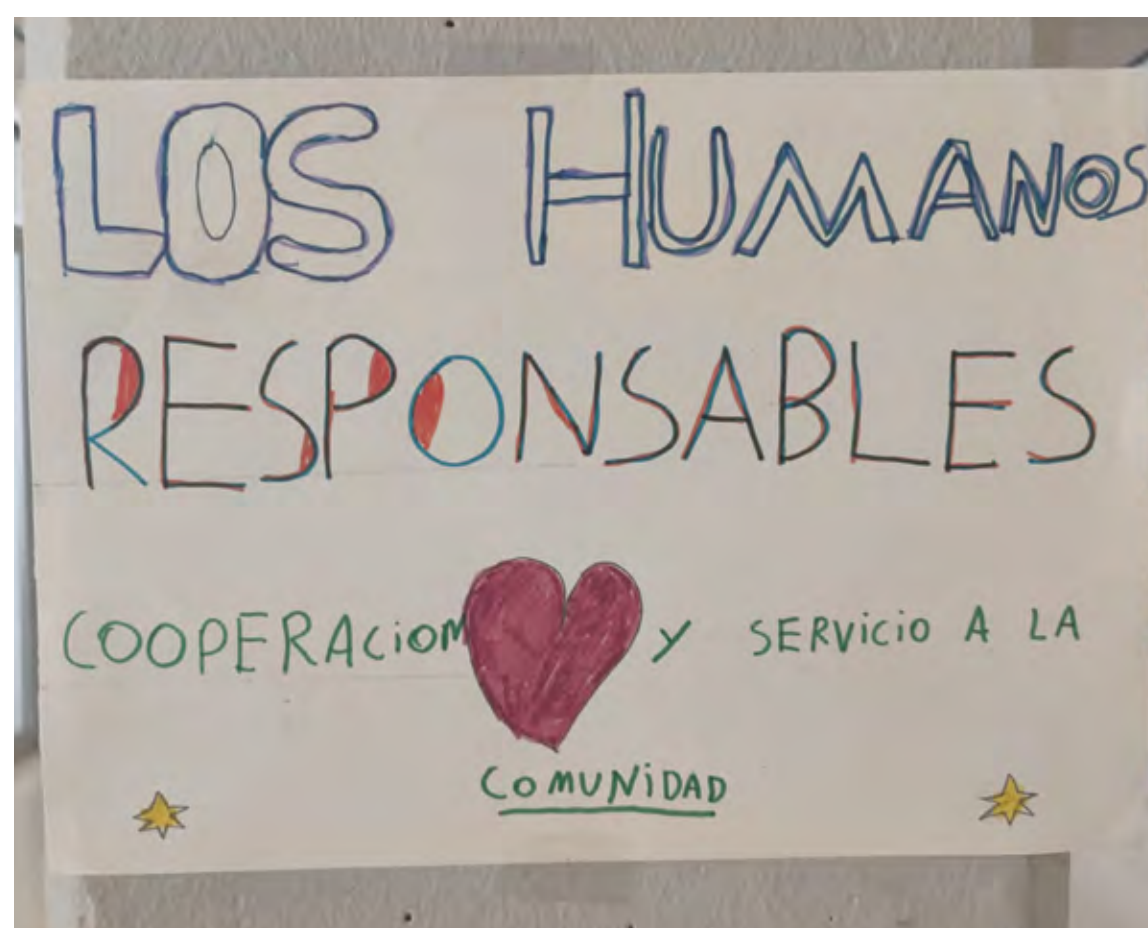 LOS HUMANOS
RESPONSABLES
COOPERAciOM Y SERViciO A LA
COMUNiDAD